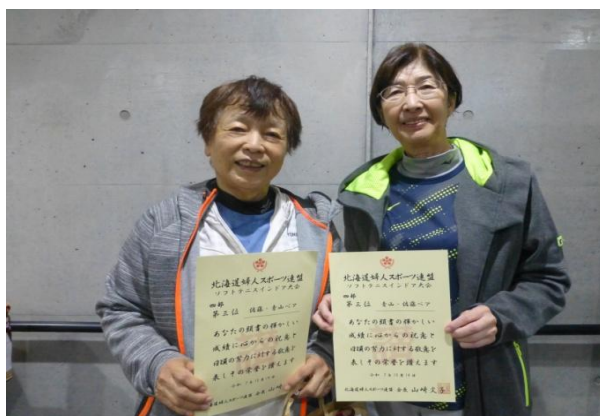 北海道婦人スポーツ連盟
ソフトテニスインドア大会
四部
第三位 佐藤・青山ペア
あなたの頭書の輝かしい
成績に心からの祝意と
日頃の努力に対する敬意を
表しその栄誉を讃えます
北海道婦人スポーツ連盟 会長 山崎
北海道婦人スポーツ連盟
ソフトテニスインドア大会
四部
第三位 青山・佐藤ペア
あなたの頭書の輝かしい
成績に心からの祝意と
日頃の努力に対する敬意を
表しその栄誉を讃えます
北海道婦人スポーツ連盟 会長 山崎